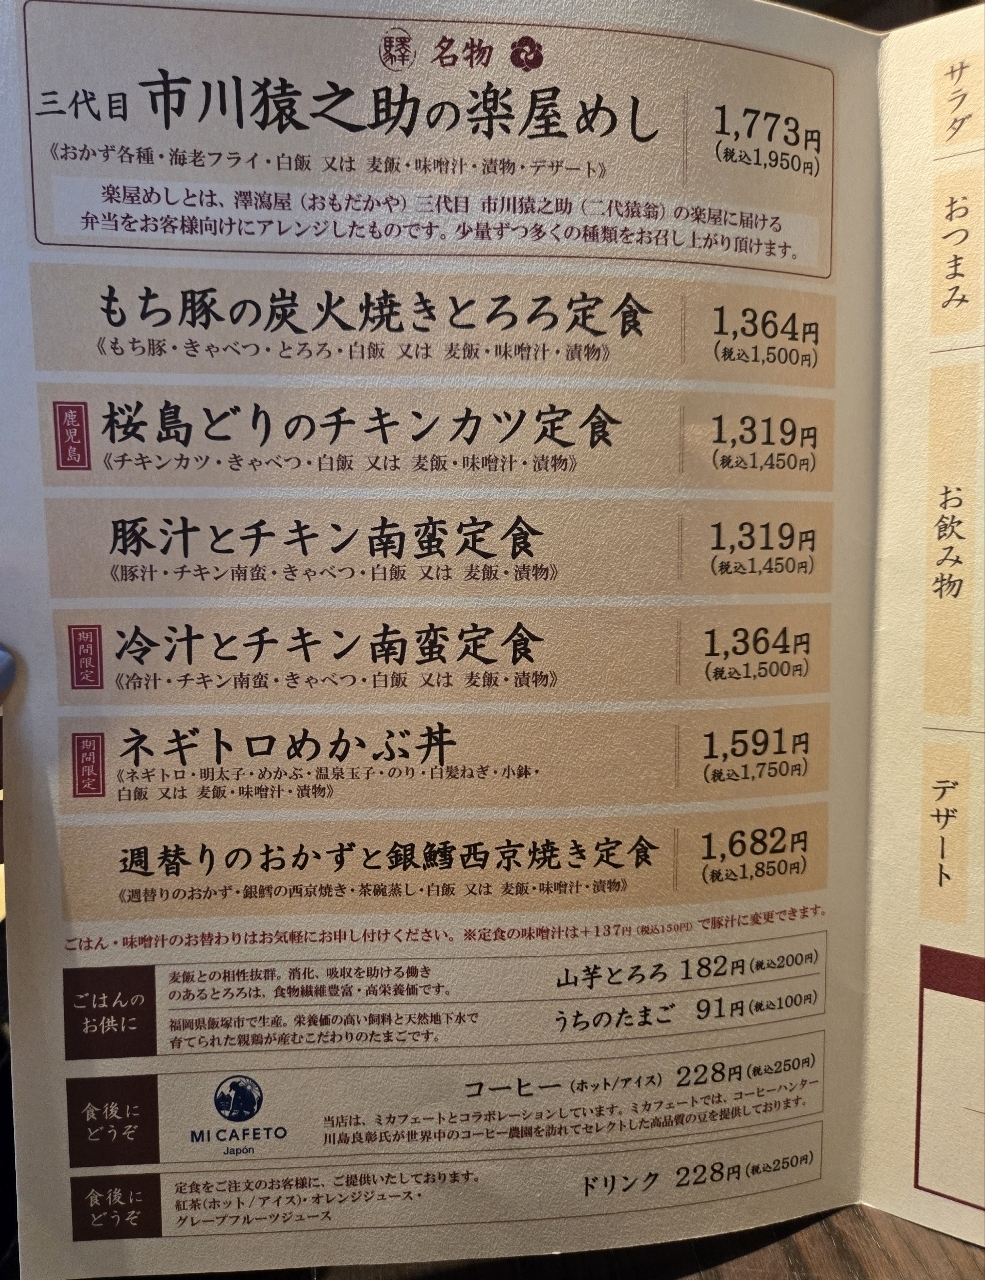 驛 名物
三代目 市川猿之助の楽屋めし
1,773円
(税込1,950円)
《おかず各種・海老フライ・白飯 又は 麦飯・味噌汁・漬物・デザート》
楽屋めしとは、澤瀉屋（おもだかや）三代目 市川猿之助（二代猿翁）の楽屋に届ける
弁当をお客様向けにアレンジしたものです。少量ずつ多くの種類をお召し上がり頂けます。
もち豚の炭火焼きとろろ定食
1,364円
(税込1,500円)
《もち豚・きゃべつ・とろろ・白飯 又は 麦飯・味噌汁・漬物》
鹿児島
桜島どりのチキンカツ定食
1,319円
(税込1,450円)
《チキンカツ・きゃべつ・白飯 又は 麦飯・味噌汁・漬物》
豚汁とチキン南蛮定食
1,319円
(税込1,450円)
《豚汁・チキン南蛮・きゃべつ・白飯 又は 麦飯・漬物》
期間限定
冷汁とチキン南蛮定食
1,364円
(税込1,500円)
《冷汁・チキン南蛮・きゃべつ・白飯 又は 麦飯・漬物》
期間限定
ネギトロめかぶ丼
1,591円
(税込1,750円)
《ネギトロ・明太子・めかぶ・温泉玉子・のり・白髪ねぎ・小鉢・
白飯 又は 麦飯・味噌汁・漬物》
週替りのおかずと銀鱈西京焼き定食
1,682円
(税込1,850円)
《週替りのおかず・銀鱈の西京焼き・茶碗蒸し・白飯 又は 麦飯・味噌汁・漬物》
ごはん・味噌汁のお替わりはお気軽にお申し付けください。※定食の味噌汁は＋137円（税込150円）で豚汁に変更できます。
ごはんの
お供に
麦飯との相性抜群。消化、吸収を助ける働き
のあるとろろは、食物繊維豊富・高栄養価です。
山芋とろろ 182円(税込200円)
福岡県飯塚市で生産。栄養価の高い飼料と天然地下水で
育てられた親鶏が産むこだわりのたまごです。
うちのたまご 91円(税込100円)
食後に
どうぞ
MI CAFETO
Japón
コーヒー（ホット/アイス） 228円(税込250円)
当店は、ミカフェートとコラボレーションしています。ミカフェートでは、コーヒーハンター
川島良彰氏が世界中のコーヒー農園を訪れてセレクトした高品質の豆を提供しております。
食後に
どうぞ
定食をご注文のお客様に、ご提供いたしております。
紅茶(ホット/アイス)・オレンジジュース・
グレープフルーツジュース
ドリンク 228円(税込250円)
サラダ
おつまみ
お飲み物
デザート